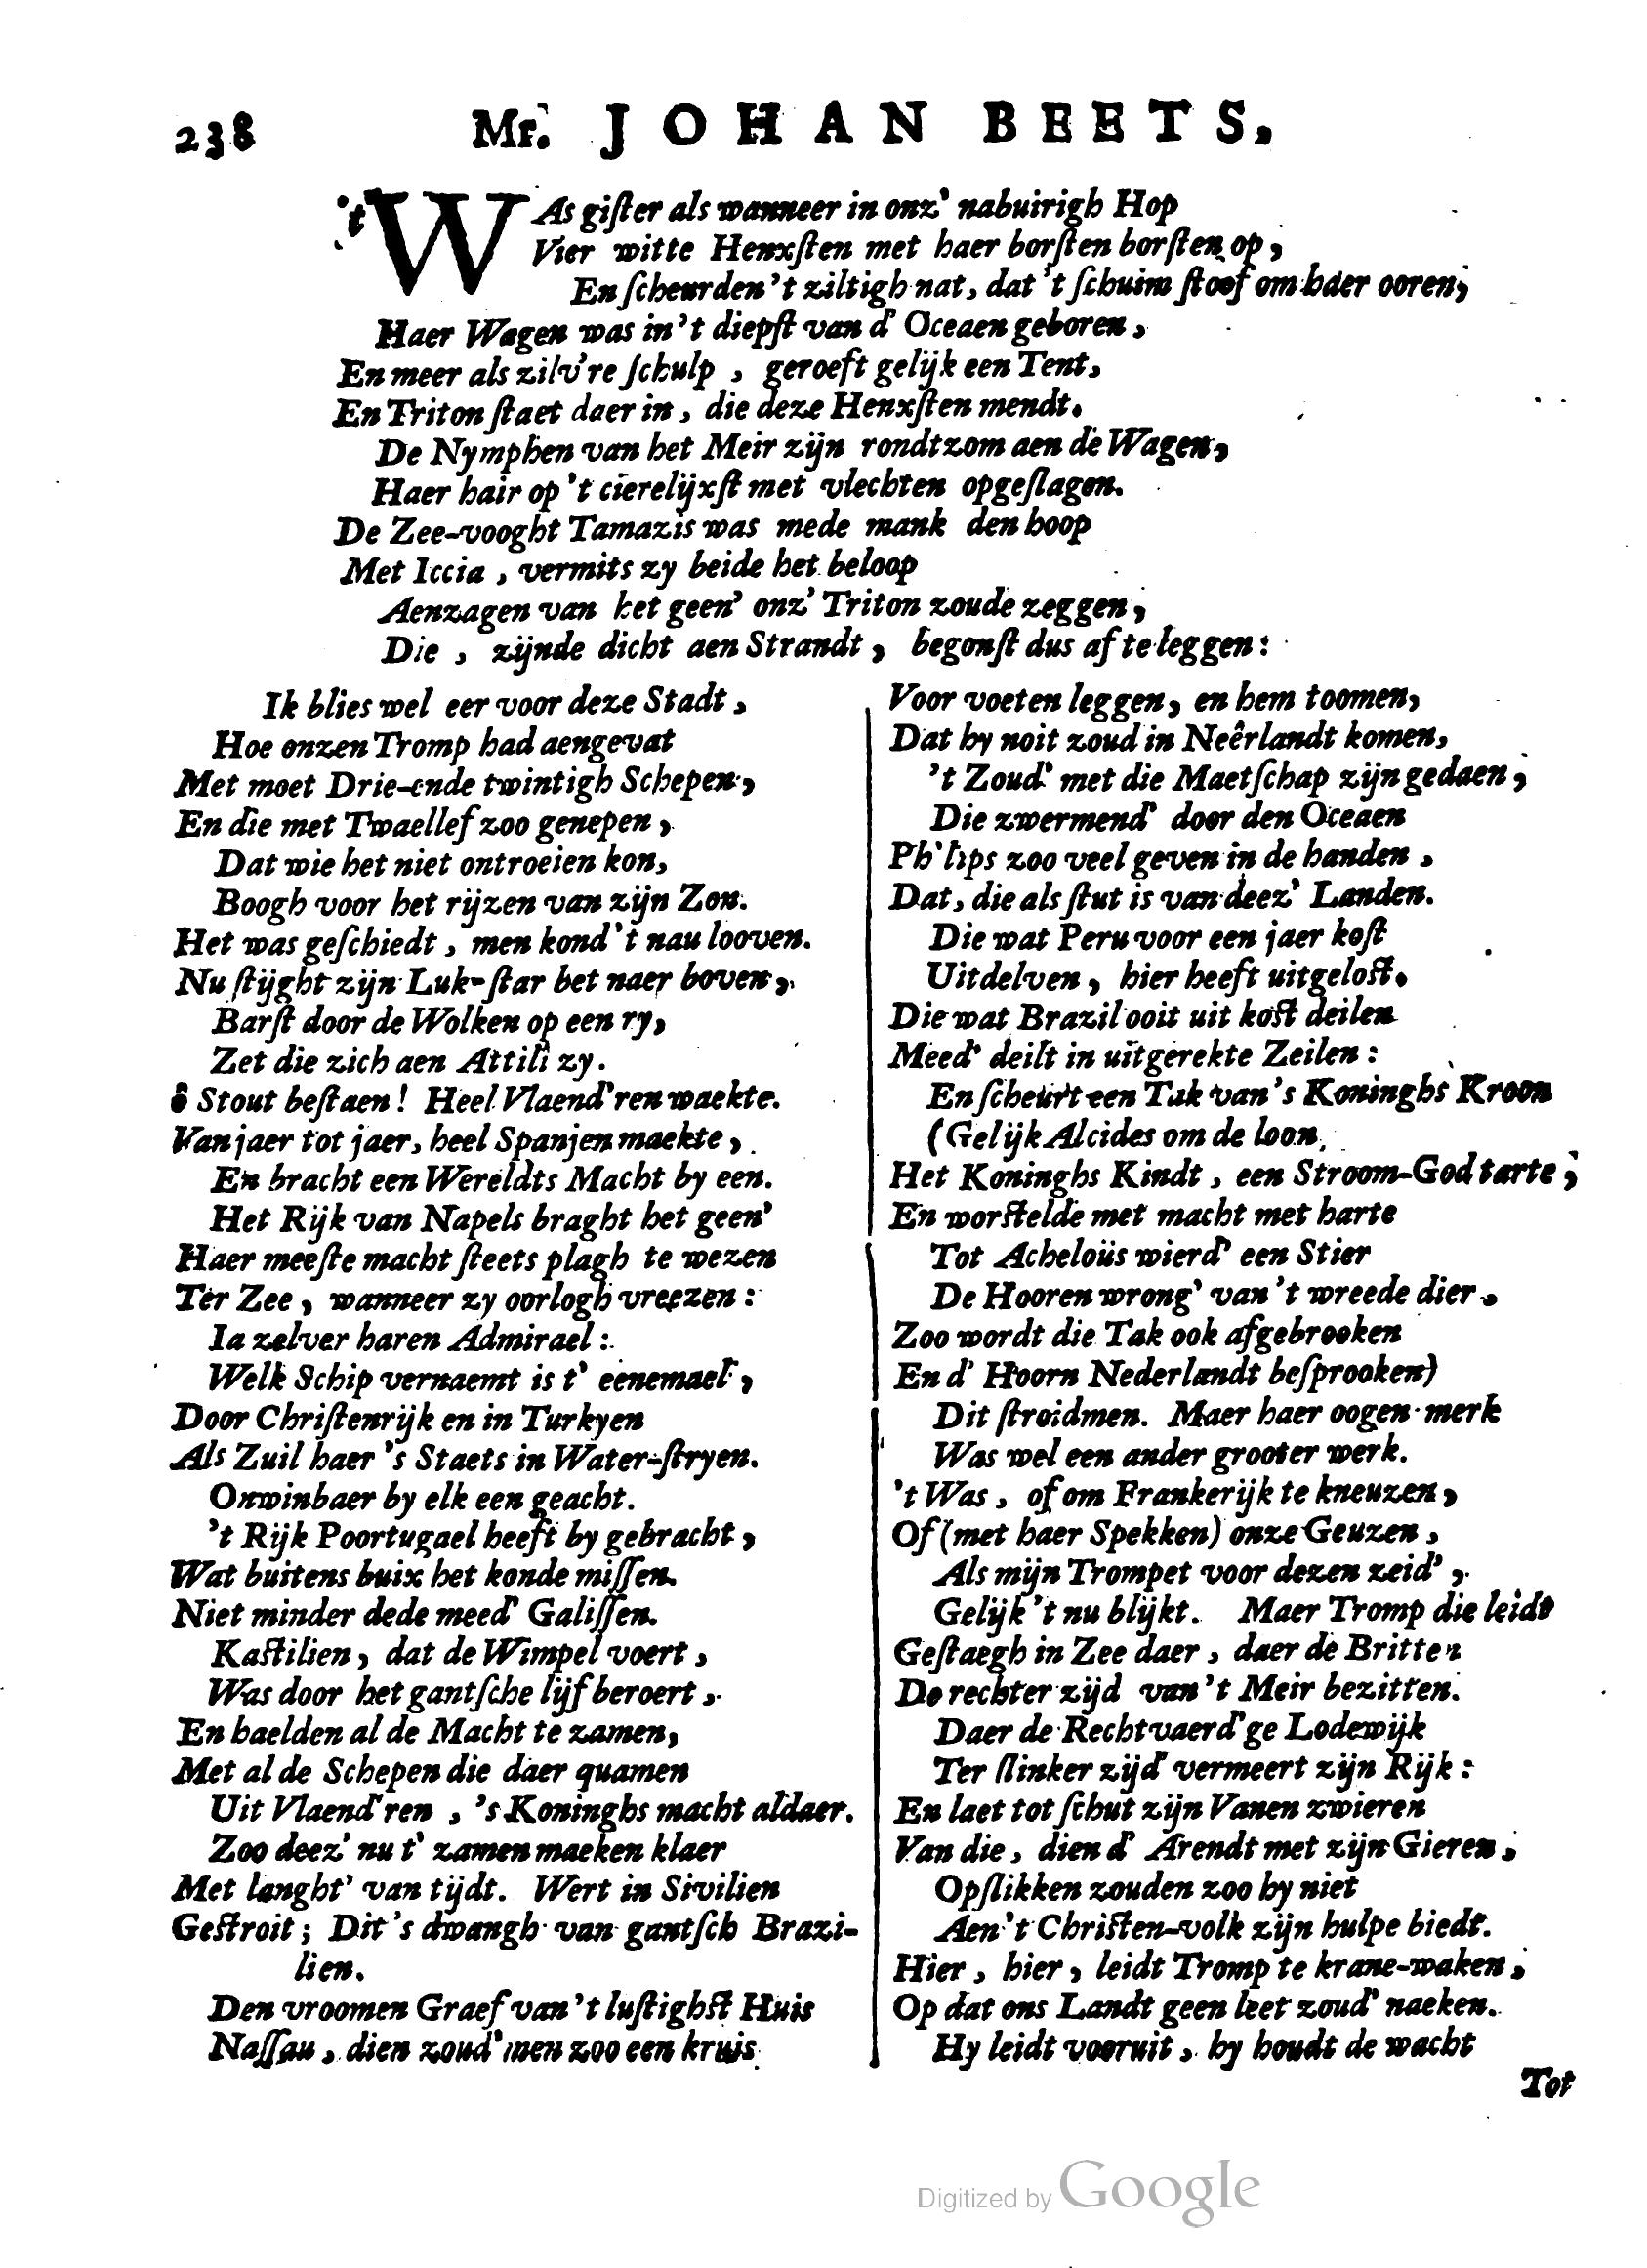 238 Mr. JOHAN BEETS,
'tWAs giſter als wanneer in onz' nabuirigh Hop
Vier witte Henxſten met haer borſten borſten op,
En ſcheurden 't ziltigh nat, dat 't ſchuim ſtoof om haer ooren;
Haer Wagen was in 't diepſt van d' Oceaen geboren,
En meer als zilv're ſchulp, geroeft gelijk een Tent,
En Triton ſtaet daer in, die deze Henxſten mendt.
De Nymphen van het Meir zijn rondtzom aen de Wagen,
Haer hair op 't cierelijxſt met vlechten opgeſlagen.
De Zee-vooght Tamazis was mede mank den hoop
Met Iccia, vermits zy beide het beloop
Aenzagen van het geen' onz' Triton zoude zeggen;
Die, zijnde dicht aen Strandt, begonſt dus af te leggen:
Ik blies wel eer voor deze Stadt,
Hoe onzen Tromp had aengevat
Met moet Drie-ende twintigh Schepen,
En die met Twaellef zoo genepen,
Dat wie het niet ontroeien kon,
Boogh voor het rijzen van zijn Zon.
Het was geſchiedt, men kond't nau looven.
Nu ſtijght zijn Luk-ſtar bet naer boven,
Barſt door de Wolken op een ry,
Zet die zich aen Attili zy.
ô Stout beſtaen! Heel Vlaend'ren waekte.
Van jaer tot jaer, heel Spanjen maekte,
En bracht een Wereldts Macht by een.
Het Rijk van Napels braght het geen'
Haer meeſte macht ſteets plagh te wezen
Ter Zee, wanneer zy oorlogh vreezen:
Ia zelver haren Admirael:
Welk Schip vernaemt is t' eenemael,
Door Chriſtenrijk en in Turkyen
Als Zuil haer 's Staets in Water-ſtryen.
Onwinbaer by elk een geacht.
't Rijk Poortugael heeft by gebracht,
Wat buitens buix het konde miſſen.
Niet minder dede meed' Galiſſen.
Kaſtilien, dat de Wimpel voert,
Was door het gantſche lijf beroert,
En haelden al de Macht te zamen,
Met al de Schepen die daer quamen
Uit Vlaend'ren, 's Koninghs macht aldaer.
Zoo deez' nu t' zamen maeken klaer
Met langht' van tijdt. Wert in Sivilien
Geſtroit; Dit 's dwangh van gantſch Brazi-
lien.
Den vroomen Graef van 't luſtighſt Huis
Naſſau, dien zoud' men zoo een kruis
Voor voeten leggen, en hem toomen,
Dat hy noit zoud in Neêrlandt komen,
't Zoud' met die Maetſchap zijn gedaen;
Die zwermend' door den Oceaen
Ph'lips zoo veel geven in de handen,
Dat, die als ſtut is van deez' Landen.
Die wat Peru voor een jaer koſt
Uitdelven, hier heeft uitgeloſt.
Die wat Brazil ooit uit koſt deilen
Meed' deilt in uitgerekte Zeilen:
En ſcheurt een Tak van 's Koninghs Kroon
(Gelijk Alcides om de loon,
Het Koninghs Kindt, een Stroom-God tarte;
En worſtelde met macht met harte
Tot Acheloüs wierd' een Stier
De Hooren wrong' van 't wreede dier.
Zoo wordt die Tak ook afgebrooken
En d' Hoorn Nederlandt beſprooken)
Dit ſtroidmen. Maer haer oogen merk
Was wel een ander grooter werk.
't Was, of om Frankerijk te kneuzen,
Of (met haer Spekken) onze Geuzen,
Als mijn Trompet voor dezen zeid',
Gelijk 't nu blijkt. Maer Tromp die leidt
Geſtaegh in Zee daer, daer de Britten
De rechter zijd van 't Meir bezitten.
Daer de Rechtvaerd'ge Lodewijk
Ter ſlinker zijd' vermeert zijn Rijk:
En laet tot ſchut zijn Vanen zwieren
Van die, dien d' Arendt met zijn Gieren,
Opſlikken zouden zoo hy niet
Aen 't Chriſten-volk zijn hulpe biedt.
Hier, hier, leidt Tromp te krane-waken,
Op dat ons Landt geen leet zoud' naeken.
Hy leidt vooruit, hy houdt de wacht
Tot
Digitized by Google